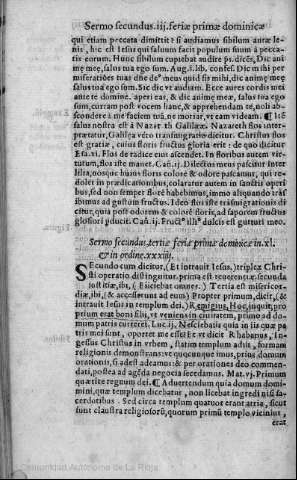 Sermo secundus.iij.feriæ primæ dominicæ
qui etiam peccata dimittit? si audiamus sibilum auræ le-
nis, hic est Iesus qui saluum facit populum suum à pecca-
tis eorum. Hunc sibilum cupiebat audire ps. dicẽs, Dic ani
mę meę, salus tua ego sum. Aug.i.lib. confes. Dic mihi per
miseratiões tuas dñe deꝰ meus quid sis mihi, dic animę meę
salus tua ego sum. Sic dic vt audiam. Ecce aures cordis mei
ante te domine. aperi eas, & dic animę meæ, salus tua ego
sum, curram post vocem hanc, & apprehendam te, noli abs-
condere à me faciem tuã, ne moriar, vt eam videam. ¶ Itẽ
salus nostra est à Nazareth Galilææ. Nazareth flos inter-
pretatur, Galilæa verò transmigratio dicitur. Christus flos
est gratiæ, cuius floris fructus gloria erit: de quo dicitur
Esa.vi. Flos de radice eius ascendet. In floribus autem vir-
tutum, flos iste manet. Cañ.ij. Dilectus meus pascitur inter
lilia, nosque huius floris colore & odore pascamur, qui re-
dolet in prædicationibus, coloratur autem in sanctis operi
bus, sed non semper flore habebimus, immo aliquando trãs
ibimus ad gustum fructus. Ideo flos iste trãsmigrationis di
citur, quia post odorem & colorẽ floris, ad saporem fructus
gloriosi pducit. Cañ.ij. Fructꝰ illiꝰ dulcis est gutturi meo.
Sermo secundus.tertiæ feriæ primæ dominicæ in.xl.
& in ordine.xxxiiij.
SEcundo cum dicitur, (Et intrauit Iesus,) triplex Chri-
sti operatio distinguitur. prima est reuerentiæ secunda
iustitiæ, ibi, (Et eiiciebat omnes.) Tertia est misericor-
diæ, ibi, (& accesserunt ad eum) Propter primum, dicit, (&
intrauit Iesus in templum dei.) Remigius, Hoc, inquit, pro
prium erat boni filij, vt veniens in ciuitatem, primo ad do-
mum patris curreret. Luc.ij, Nesciebatis quia in iis quæ pa
tris mei sunt, oportet me esse? Et vt dicit Rhabanus, In-
gressus Christus in vrbem, statim templum adiit, formam
religionis demonstrans: vt quocunque imus, prius domum
orationis, si adest adeamus: & per orationes deo commen-
dati, postea ad agẽda negocia secedamus. Mat.vj. Primum
quærite regnum dei. ¶ Aduertendum quia domum domi-
ni, quæ templum dicebatur, non licebat ingredi nisi sa-
cerdotibus. Sed circa templum quatuor erant atria, sicut
sunt claustra religiosorũ, quorum primũ templo vicinius,
erat
Comunidad Autónoma de La Rioja